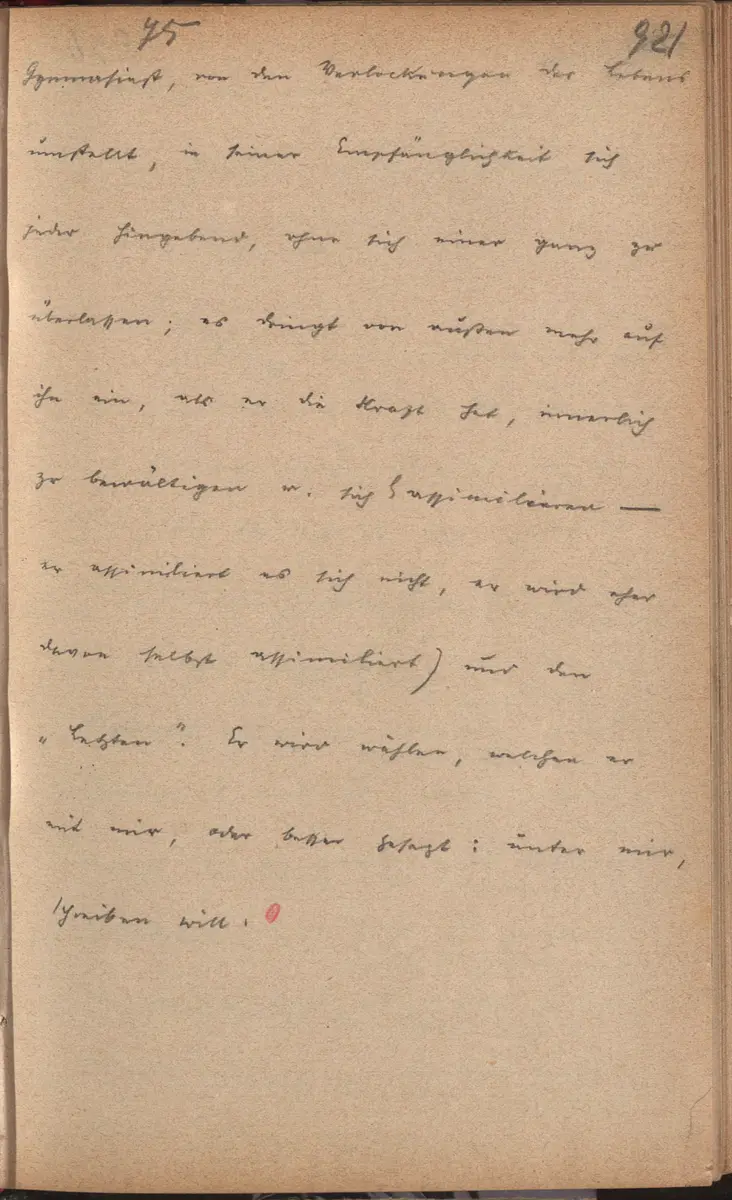 75 921
Gymnasiast, von den Verlockungen des Lebens
umstellt, in seiner Empfänglichkeit sich
jeder hingebend, ohne sich einer ganz zu
überlassen; es dringt von außen mehr auf
ihn ein, als er die Kraft hat, innerlich
zu bewältigen u. sich zu assimilieren —
er assimiliert es sich nicht, er wird eher
davon selbst assimiliert) und den
„Letzten“. Er wird wählen, welchen er
mit mir, oder besser gesagt: unter mir,
schreiben will.